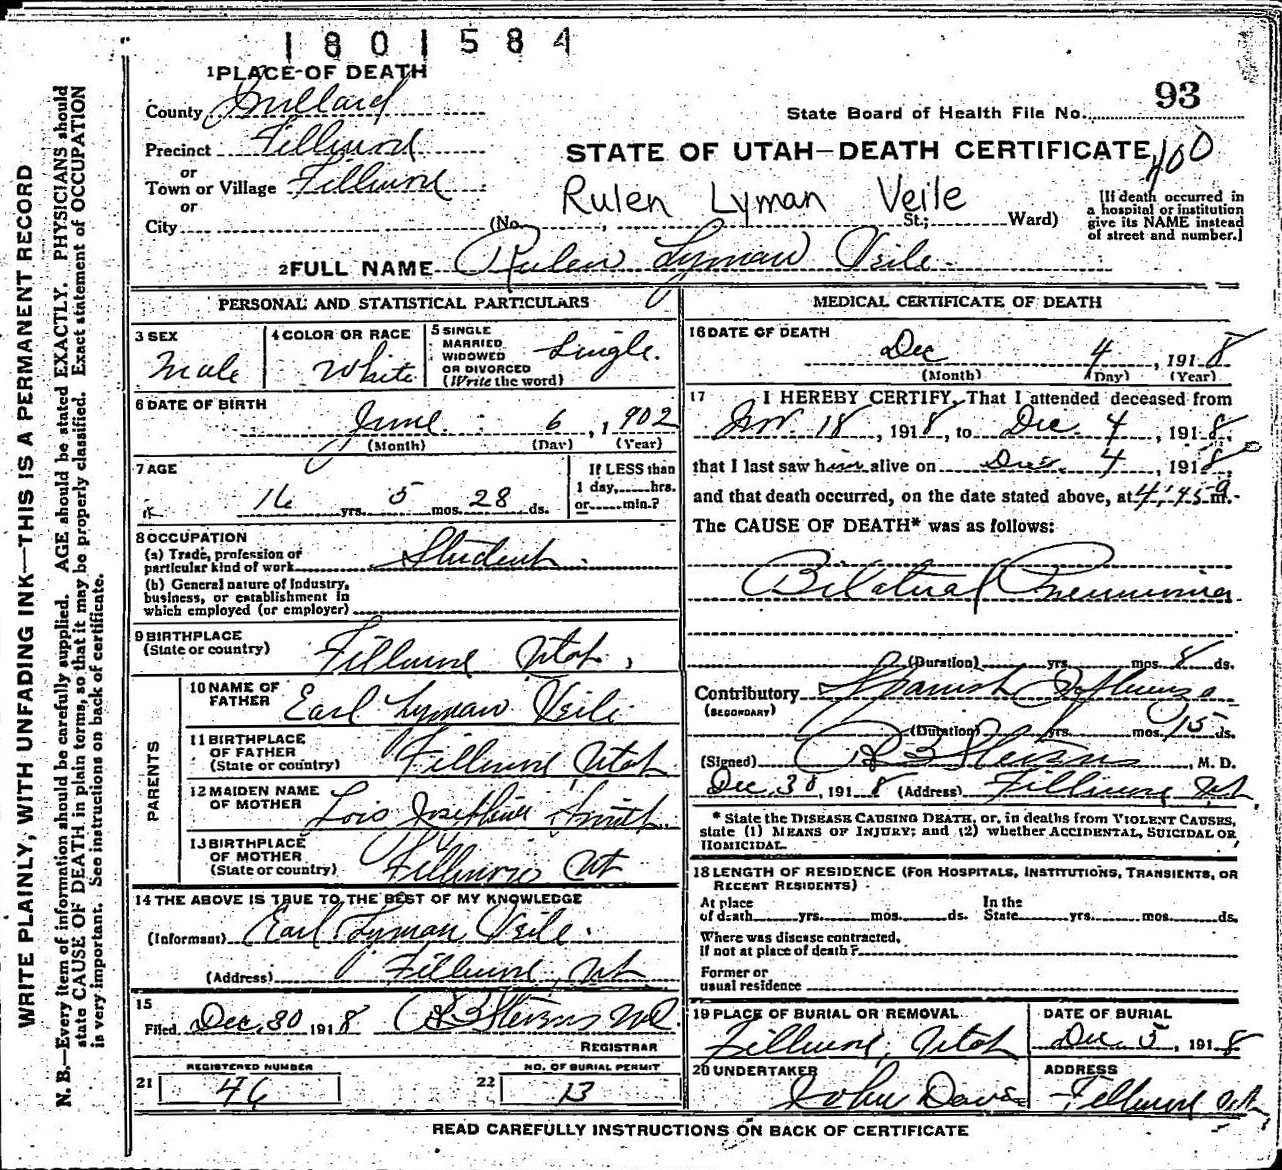 1801584
1 PLACE OF DEATH
County Millard
State Board of Health File No. 93
Precinct Fillmore
or
STATE OF UTAH—DEATH CERTIFICATE 400
Town or Village Fillmore
or
Rulen Lyman Veile
City (No. , St.; Ward)
[If death occurred in
a hospital or institution
give its NAME instead
of street and number.]
2 FULL NAME Rulen Lyman Veile
PERSONAL AND STATISTICAL PARTICULARS
3 SEX
Male
4 COLOR OR RACE
White
5 SINGLE
MARRIED
WIDOWED
OR DIVORCED
(Write the word)
Single.
6 DATE OF BIRTH
June 6, 1902
(Month) (Day) (Year)
7 AGE
16 yrs. 5 mos. 28 ds.
If LESS than
1 day, hrs.
or min.?
8 OCCUPATION
(a) Trade, profession or
particular kind of work Student.
(b) General nature of Industry,
business, or establishment in
which employed (or employer)
9 BIRTHPLACE
(State or country) Fillmore Utah,
PARENTS
10 NAME OF
FATHER Earl Lyman Veile
11 BIRTHPLACE
OF FATHER
(State or country) Fillmore Utah
12 MAIDEN NAME
OF MOTHER Lois Josephine Smith
13 BIRTHPLACE
OF MOTHER
(State or country) Fillmore Ut
14 THE ABOVE IS TRUE TO THE BEST OF MY KNOWLEDGE
(Informant) Earl Lyman Veile.
(Address) Fillmore, Ut
15
Filed Dec. 30 1918 R B Stevens M.D.
REGISTRAR
REGISTERED NUMBER
21 46
NO. OF BURIAL PERMIT
22 13
MEDICAL CERTIFICATE OF DEATH
16 DATE OF DEATH
Dec 4, 1918
(Month) (Day) (Year)
17 I HEREBY CERTIFY, That I attended deceased from
Nov. 18, 1918, to Dec. 4, 1918,
that I last saw him alive on Dec. 4, 1918,
and that death occurred, on the date stated above, at 4:45 m.
The CAUSE OF DEATH* was as follows:
Bilateral Pneumonia
(Duration) yrs. mos. 8 ds.
Contributory Spanish Influenza
(SECONDARY)
(Duration) yrs. mos. 15 ds.
(Signed) R B Stevens, M. D.
Dec. 30, 1918 (Address) Fillmore Ut.
* State the DISEASE CAUSING DEATH, or, in deaths from VIOLENT CAUSES,
state (1) MEANS OF INJURY; and (2) whether ACCIDENTAL, SUICIDAL OR
HOMICIDAL.
18 LENGTH OF RESIDENCE (FOR HOSPITALS, INSTITUTIONS, TRANSIENTS, OR
RECENT RESIDENTS)
At place In the
of death yrs. mos. ds. State yrs. mos. ds.
Where was disease contracted,
if not at place of death?
Former or
usual residence
19 PLACE OF BURIAL OR REMOVAL
Fillmore, Utah
DATE OF BURIAL
Dec 5, 1918
20 UNDERTAKER
John Davis
ADDRESS
Fillmore Ut.
READ CAREFULLY INSTRUCTIONS ON BACK OF CERTIFICATE
WRITE PLAINLY, WITH UNFADING INK—THIS IS A PERMANENT RECORD
N. B.—Every item of information should be carefully supplied. AGE should be stated EXACTLY. PHYSICIANS should
state CAUSE OF DEATH in plain terms, so that it may be properly classified. Exact statement of OCCUPATION
is very important. See instructions on back of certificate.